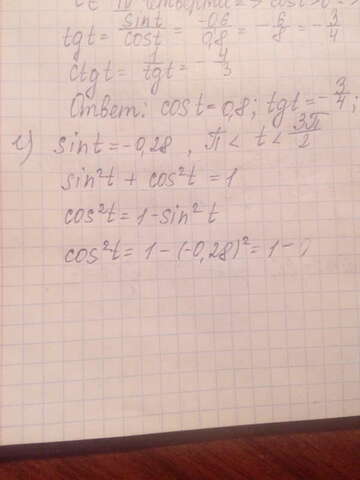 IV четверти => cost>0 =>
tgt = sint/cost = -0,6/0,8 = -6/8 = -3/4
ctgt = 1/tgt = -4/3
Ответ: cost = 0,8; tgt = -3/4;
г) sint = -0,28 , π < t < 3π/2
sin²t + cos²t = 1
cos²t = 1 - sin²t
cos²t = 1 - (-0,28)² = 1 - 0